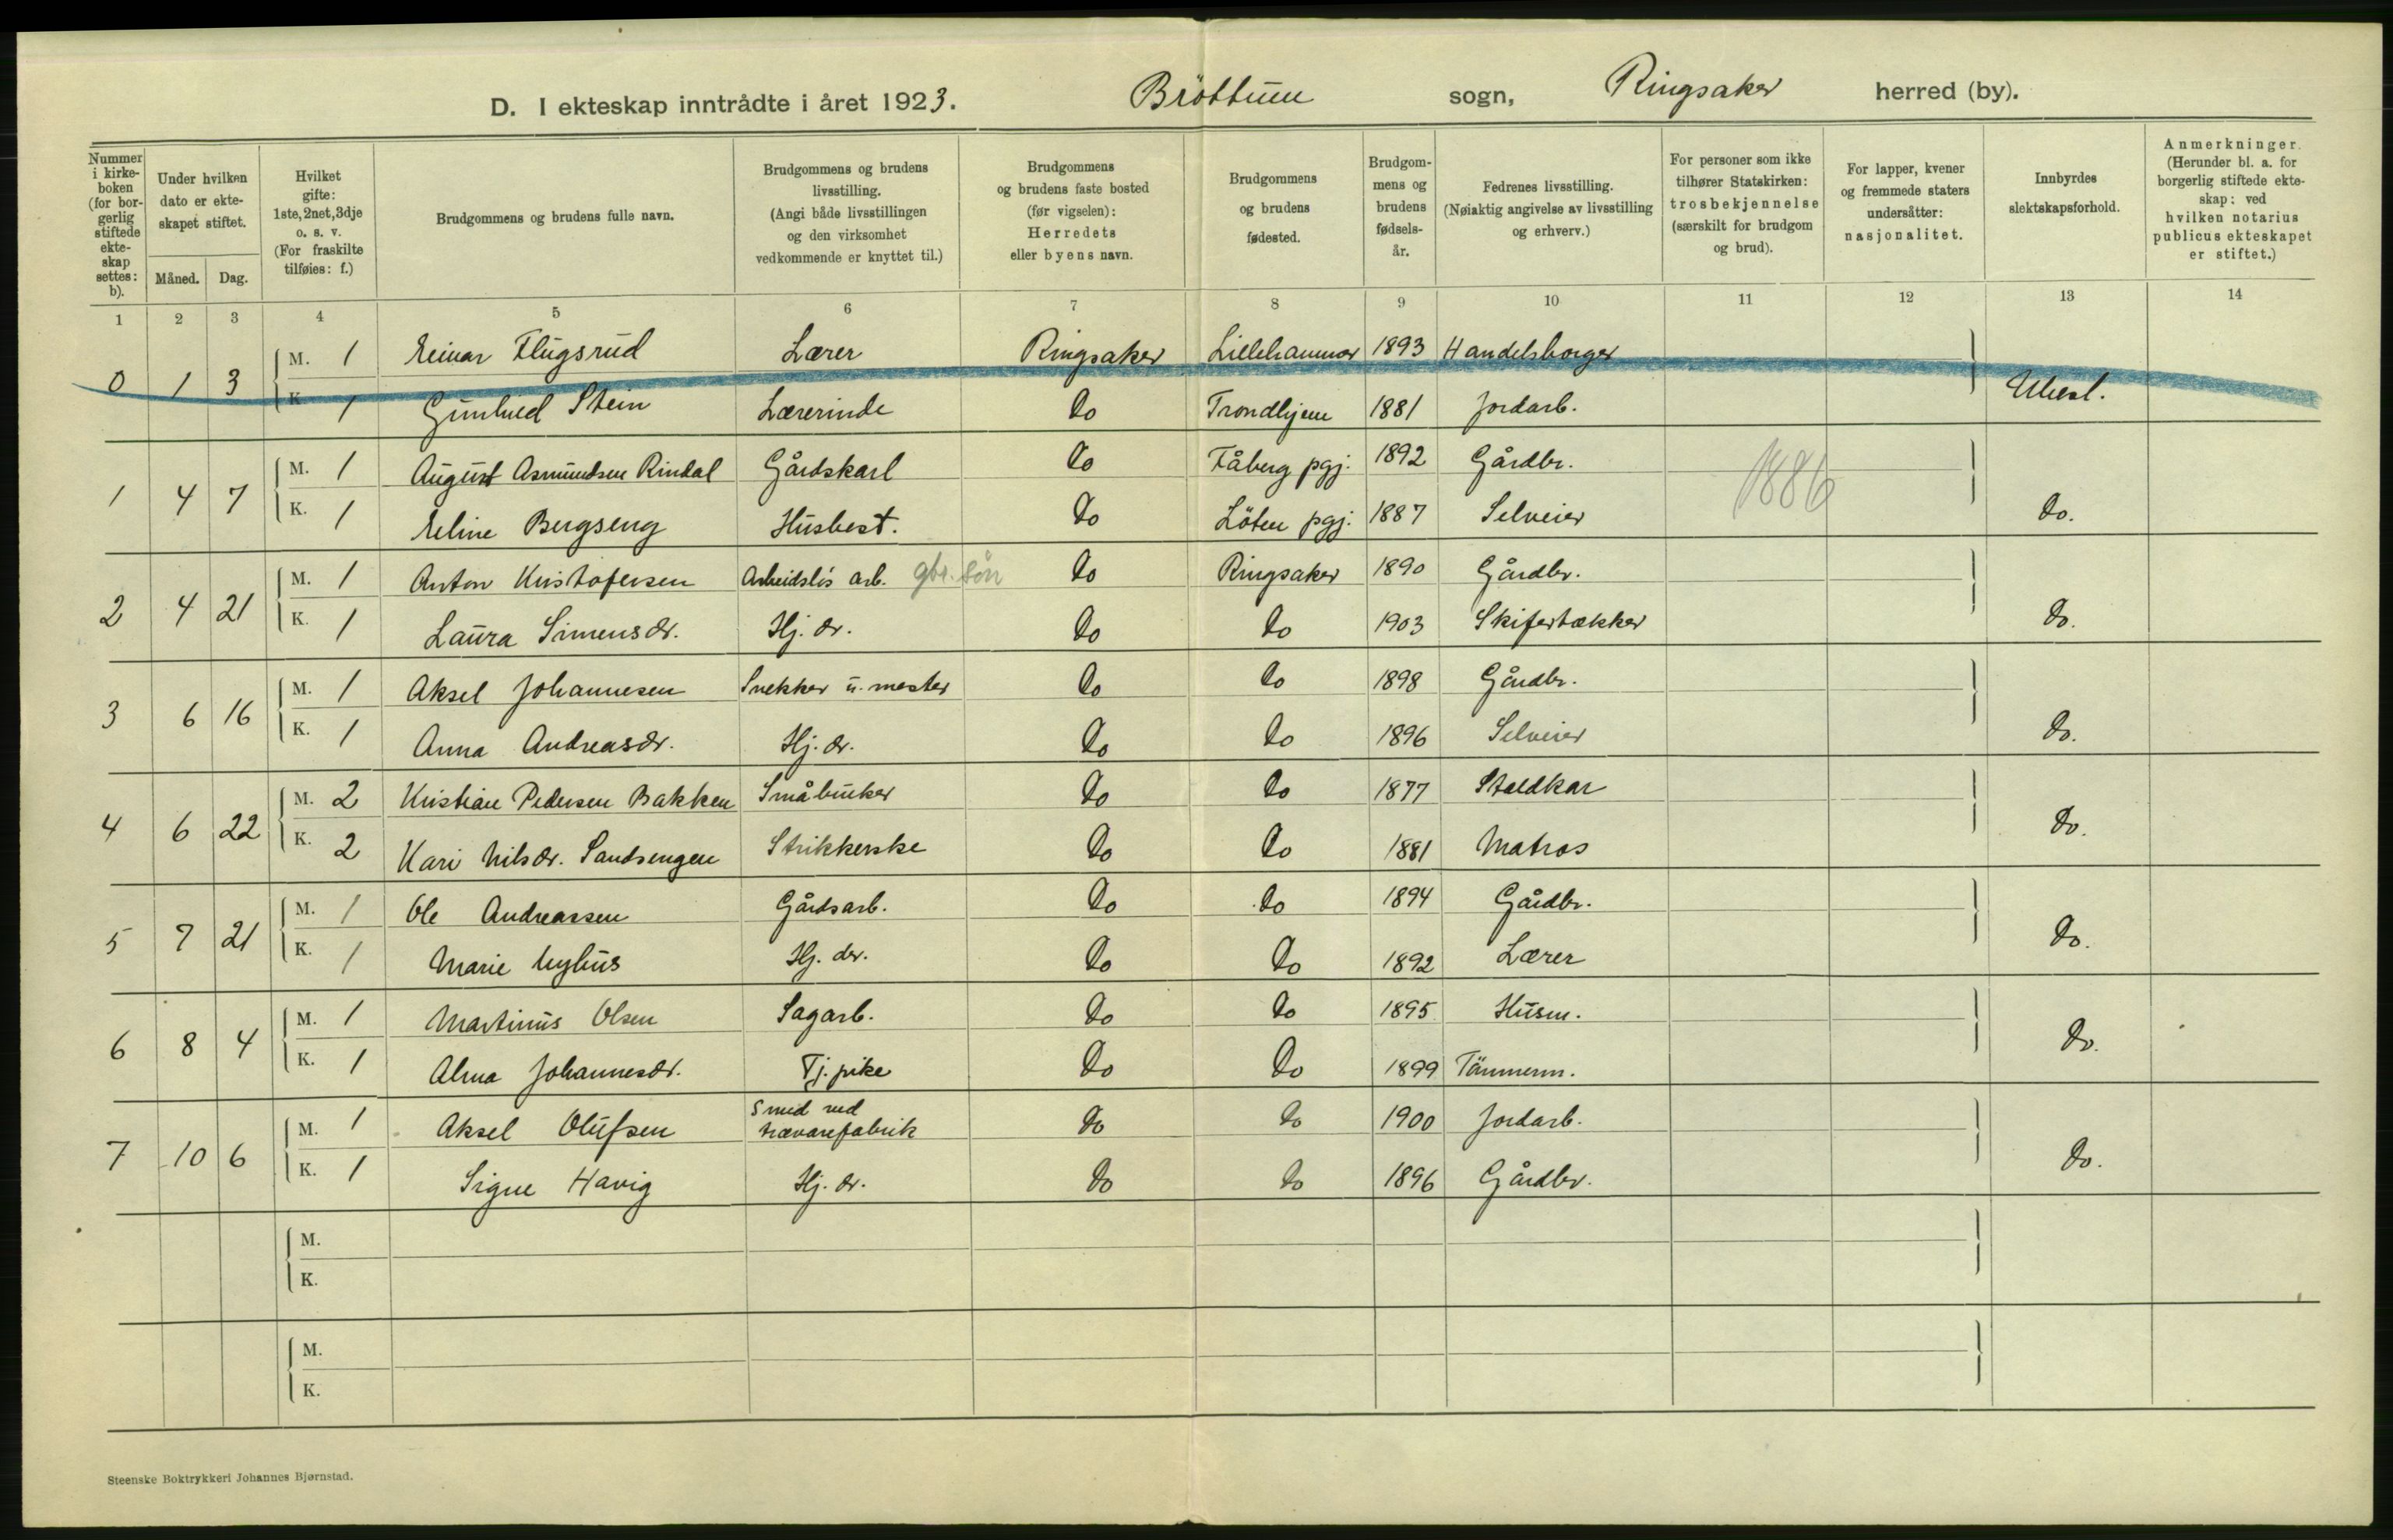 D. I ekteskap inntrådte i året 1923. Bröttum sogn, Ringsaker herred (by).
Nummer i kirkeboken (for borgerlig stiftede ekteskap settes: b).
Under hvilken dato er ekteskapet stiftet.
Måned. Dag.
Hvilket gifte: 1ste, 2net, 3dje o. s. v. (For fraskilte tilføies: f.)
Brudgommens og brudens fulle navn.
Brudgommens og brudens livsstilling. (Angi både livsstillingen og den virksomhet vedkommende er knyttet til.)
Brudgommens og brudens faste bosted (før vigselen): Herredets eller byens navn.
Brudgommens og brudens fødested.
Brudgommens og brudens fødselsår.
Fedrenes livsstilling. (Nøiaktig angivelse av livsstilling og erhverv.)
For personer som ikke tilhører Statskirken: trosbekjennelse (særskilt for brudgom og brud).
For lapper, kvener og fremmede staters undersåtter: nasjonalitet.
Innbyrdes slektskapsforhold.
Anmerkninger. (Herunder bl. a. for borgerlig stiftede ekteskap: ved hvilken notarius publicus ekteskapet er stiftet.)
1 2 3 4 5 6 7 8 9 10 11 12 13 14
0 1 3 M. 1 Einar Flugsrud Lærer Ringsaker Lillehammer 1893 Handelsborger
K. 1 Gunhild Stein Lærerinde do Trondhjem 1881 Jordarb. Ubesl.
1 4 7 M. 1 August Asmundsen Rindal Gårdskarl do Fåberg pgj. 1892 Gårdbr. 1886
K. 1 Eline Bergseng Husbest. do Löten pgj. 1887 Selveier do.
2 4 21 M. 1 Anton Kristofersen Arbeidslös arb. gbr. sön do Ringsaker 1890 Gårdbr.
K. 1 Laura Simensdr. Hj. dr. do do 1903 Skifertækker do.
3 6 16 M. 1 Aksel Johannesen Snekker u. mester do do 1898 Gårdbr.
K. 1 Anna Andreasdr. Hj. dr. do do 1896 Selveier do.
4 6 22 M. 2 Kristian Pedersen Bakken Småbruker do do 1877 Staldkar
K. 2 Kari Nilsdr. Sandsengen Strikkerske do do 1881 Matros do.
5 7 21 M. 1 Ole Andreassen Gårdsarb. do do 1894 Gårdbr.
K. 1 Marie Nyhus Hj. dr. do do 1892 Lærer do.
6 8 4 M. 1 Martinus Olsen Sagarb. do do 1895 Husm.
K. 1 Alma Johannesdr. Tj. pike do do 1899 Tömmerm. do.
7 10 6 M. 1 Aksel Olufsen Smed ved trævarefabrik do do 1900 Jordarb.
K. 1 Signe Havig Hj. dr. do do 1896 Gårdbr. do.
M.
K.
M.
K.
Steenske Boktrykkeri Johannes Bjørnstad.